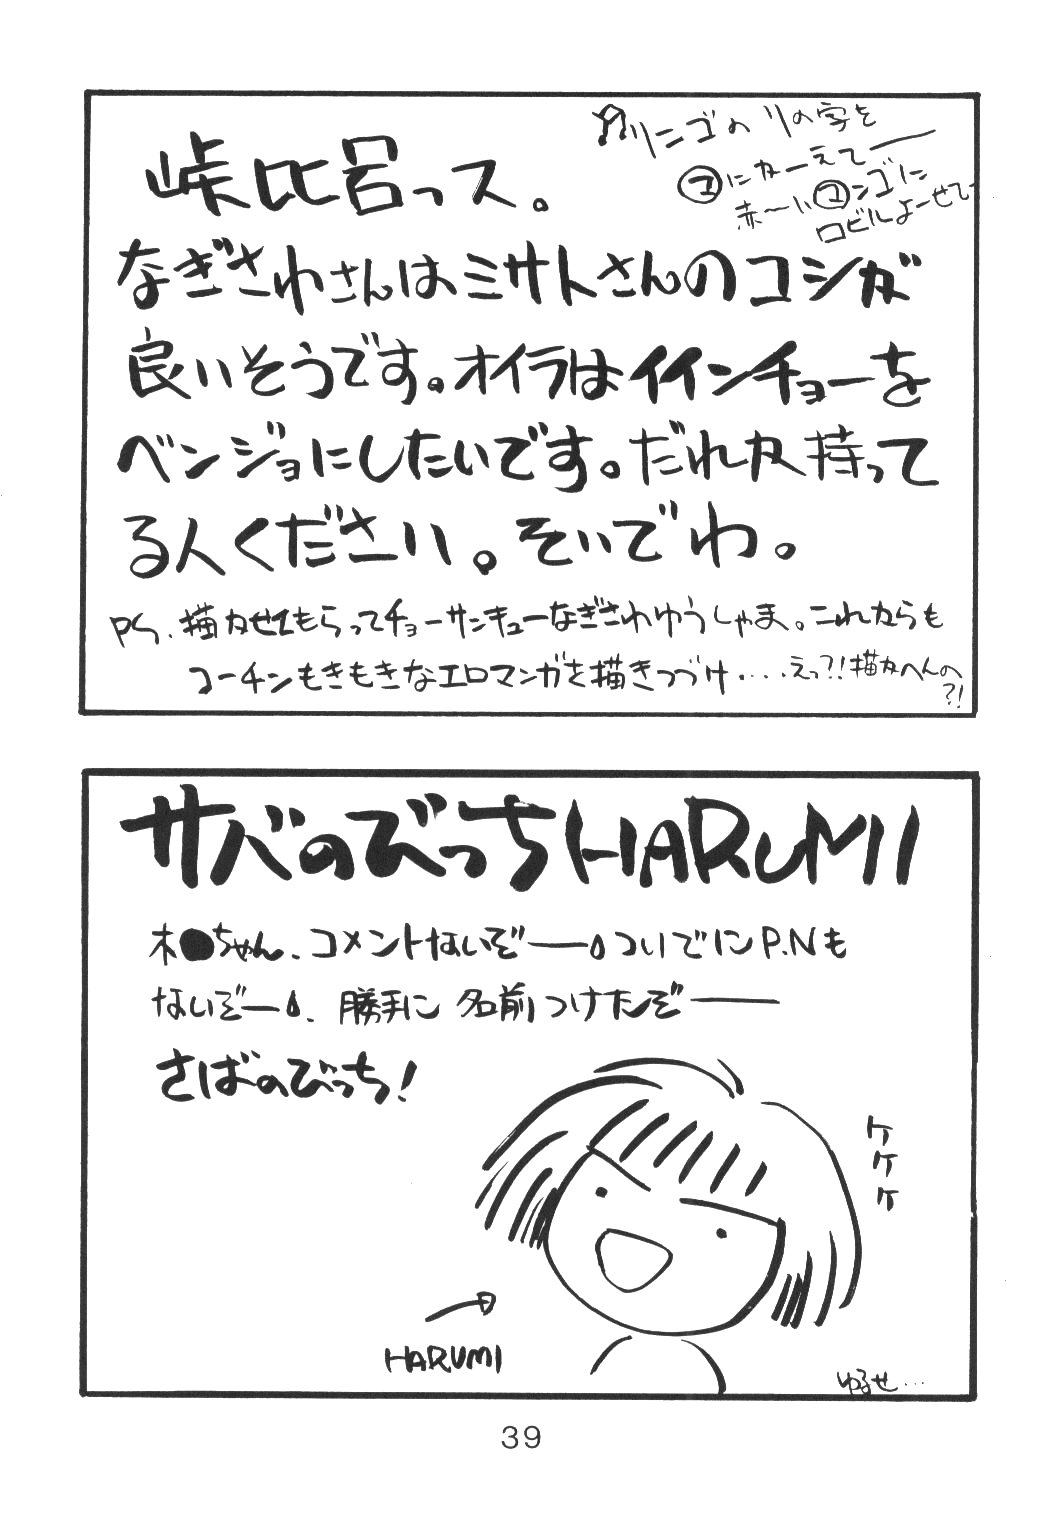 リンゴのリの字を
マにかーえてー
赤〜いマンゴに
ロビルよーせてー
峠比呂っス。
なぎさわさんはミサトさんのコシが
良いそうです。オイラはイインチョーを
ベンジョにしたいです。だれか持って
る人ください。そいでわ。
PS.描かせてもらってチョーサンキューなぎさわゆうしゃま。これからも
コーチンもきもきなエロマンガを描きつづけ....えっ?!描かへんの
?!
サバのびっちHARUMI
木●ちゃん、コメントないぞー。ついでにP.Nも
ないぞー。勝手に名前つけたぞー
さばのびっち!
ケケケ
HARUMI
ゆるせ...
39